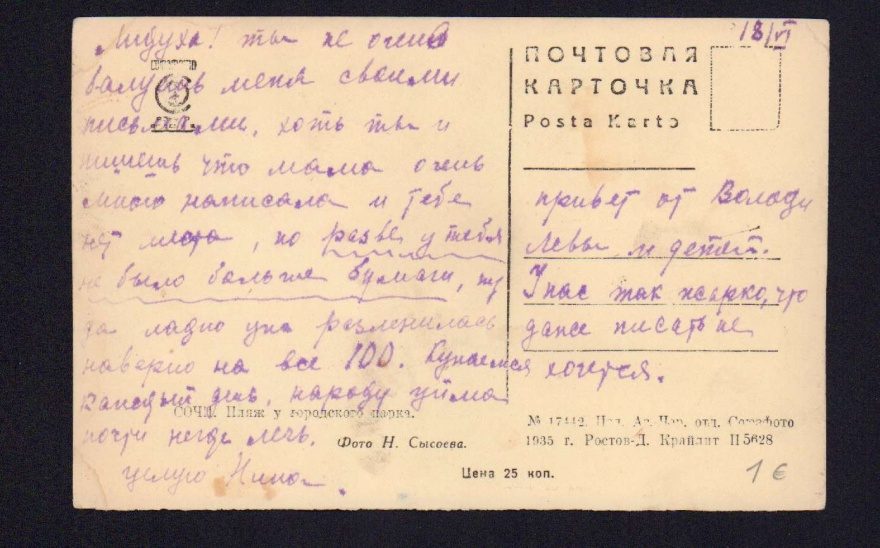 18/VI
Лидуха! ты не очень
балуешь меня своими
письмами, хоть ты и
пишешь что мама очень
много написала и тебе
нет места, но разве у тебя
не было больше бумаги, ну
да ладно уж разленилась
наверно на все 100. Купаемся
каждый день, народу уйма
почти негде лечь.
целую Нина.
ПОЧТОВАЯ
КАРТОЧКА
Posta Karto
привет от Володи
Левы и детей.
У нас так жарко, что
даже писать не
хочется.
СОЧИ. Пляж у городского парка.
Фото Н. Сысоева.
№ 17442. Изд. Аз. Чер. отд. Союзфото
1935 г. Ростов-Д. Крайлит П 5628
Цена 25 коп.
1 €